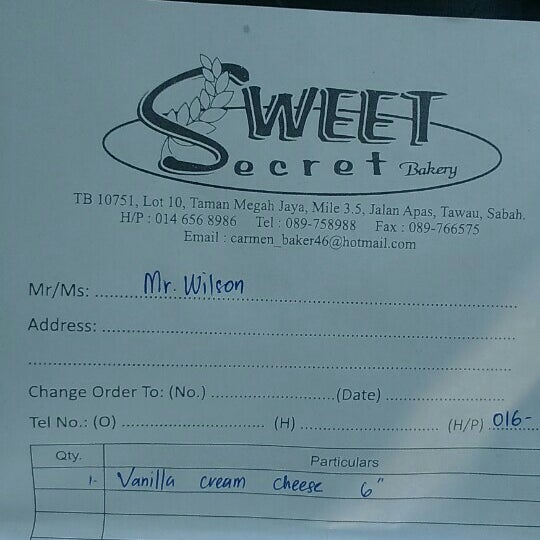 SWEET
Secret Bakery
TB 10751, Lot 10, Taman Megah Jaya, Mile 3.5, Jalan Apas, Tawau, Sabah.
H/P : 014 656 8986 Tel : 089-758988 Fax : 089-766575
Email : carmen_baker46@hotmail.com
Mr/Ms: Mr. Wilson
Address:
Change Order To: (No.) (Date)
Tel No.: (O) (H) (H/P) 016-
Qty. Particulars
1- Vanilla cream cheese 6"